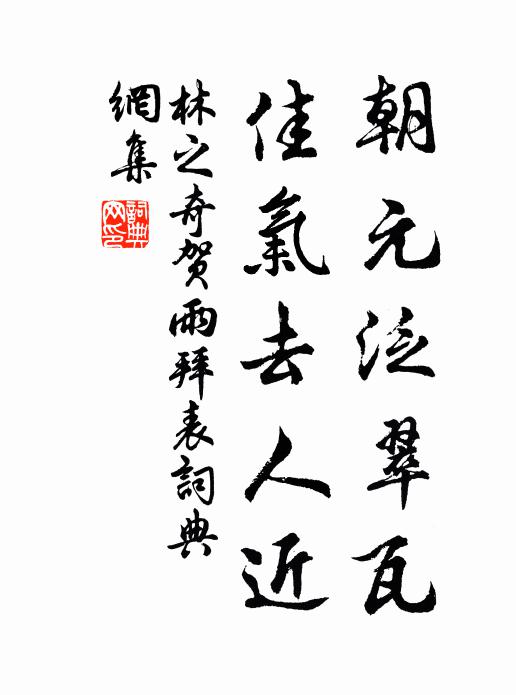 朝元泛翠瓦
佳氣去人近
林之奇賀雨拜表詞典
網集
詞典網印